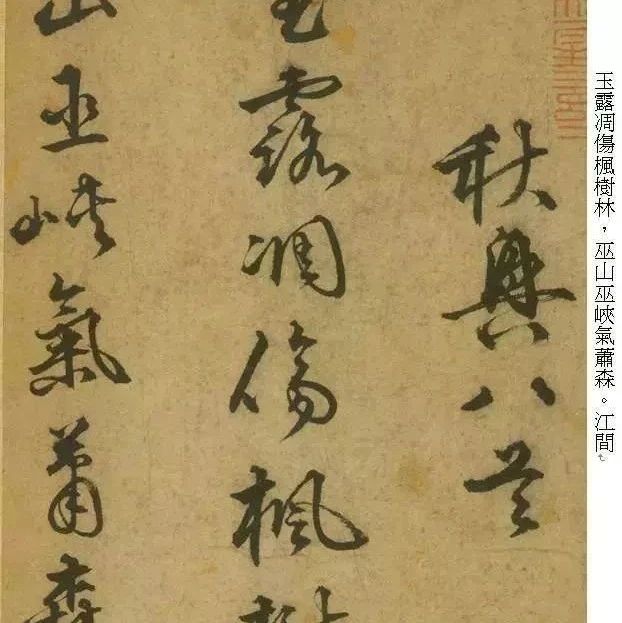 玉露凋傷楓樹林，巫山巫峽氣蕭森。江間
秋興八首
玉露凋傷楓樹
山巫峽氣蕭森